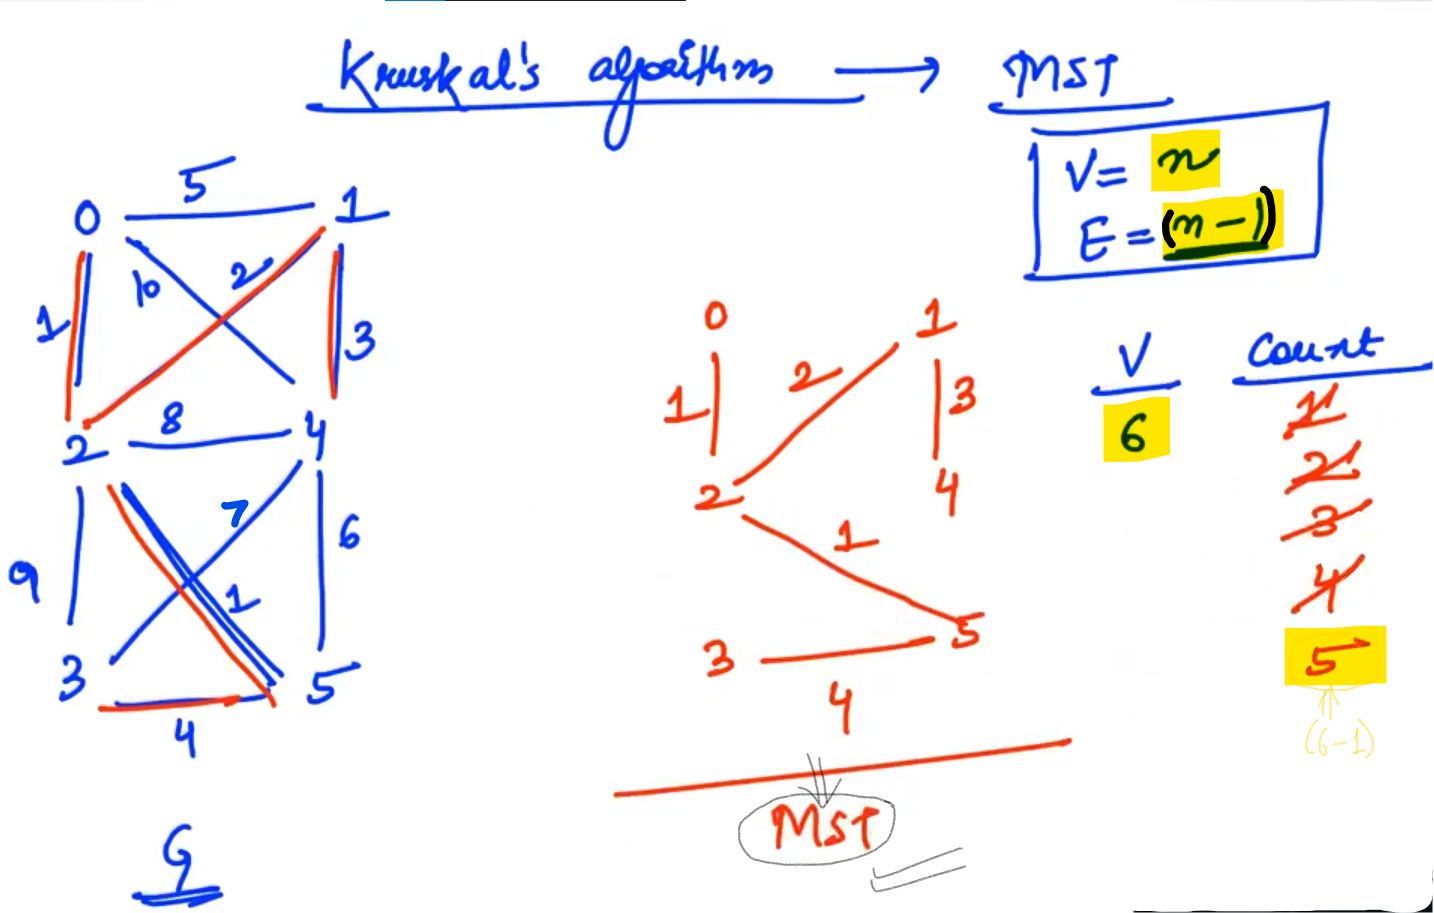 Kruskal's algorithm → MST
V = n
E = (n - 1)
0 5 1
1 10 2 3
2 8 4
9 7 1 6
3 4 5
G
0 1
1 2 3
2 4
1
3 5
4
MST
V Count
6 1
2
3
4
5
(6-1)